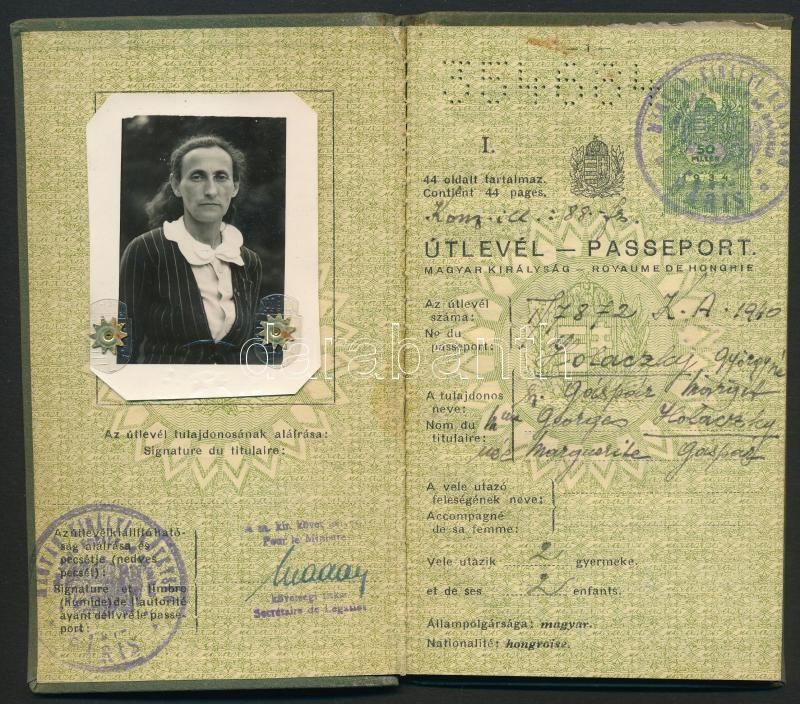 Az útlevél tulajdonosának aláírása:
Signature du titulaire:
Az útlevélkiállító ható-
ság aláírása és
pecsétje (nedves
pecsét):
Signature et timbre
(humide) de l'autorité
ayant délivré le passe-
port:
Pour le Ministre
követségi
Secrétaire de Légation
PARIS
354684
I.
44 oldalt tartalmaz.
Contient 44 pages.
50
FILLÉR
1934
PARIS
ÚTLEVÉL — PASSEPORT.
MAGYAR KIRÁLYSÁG — ROYAUME DE HONGRIE
Az útlevél
száma: 7872 K.A. 1940
No du
passeport: Holaczky Györgyné
A tulajdonos
neve: Gáspár Margit
Nom du Georges Holaczky
titulaire: née Marguerite Gáspár
A vele utazó
feleségének neve:
Accompagné
de sa femme:
Vele utazik 2 gyermeke.
et de ses 2 enfants.
Állampolgársága: magyar.
Nationalité: hongroise.
darabanth